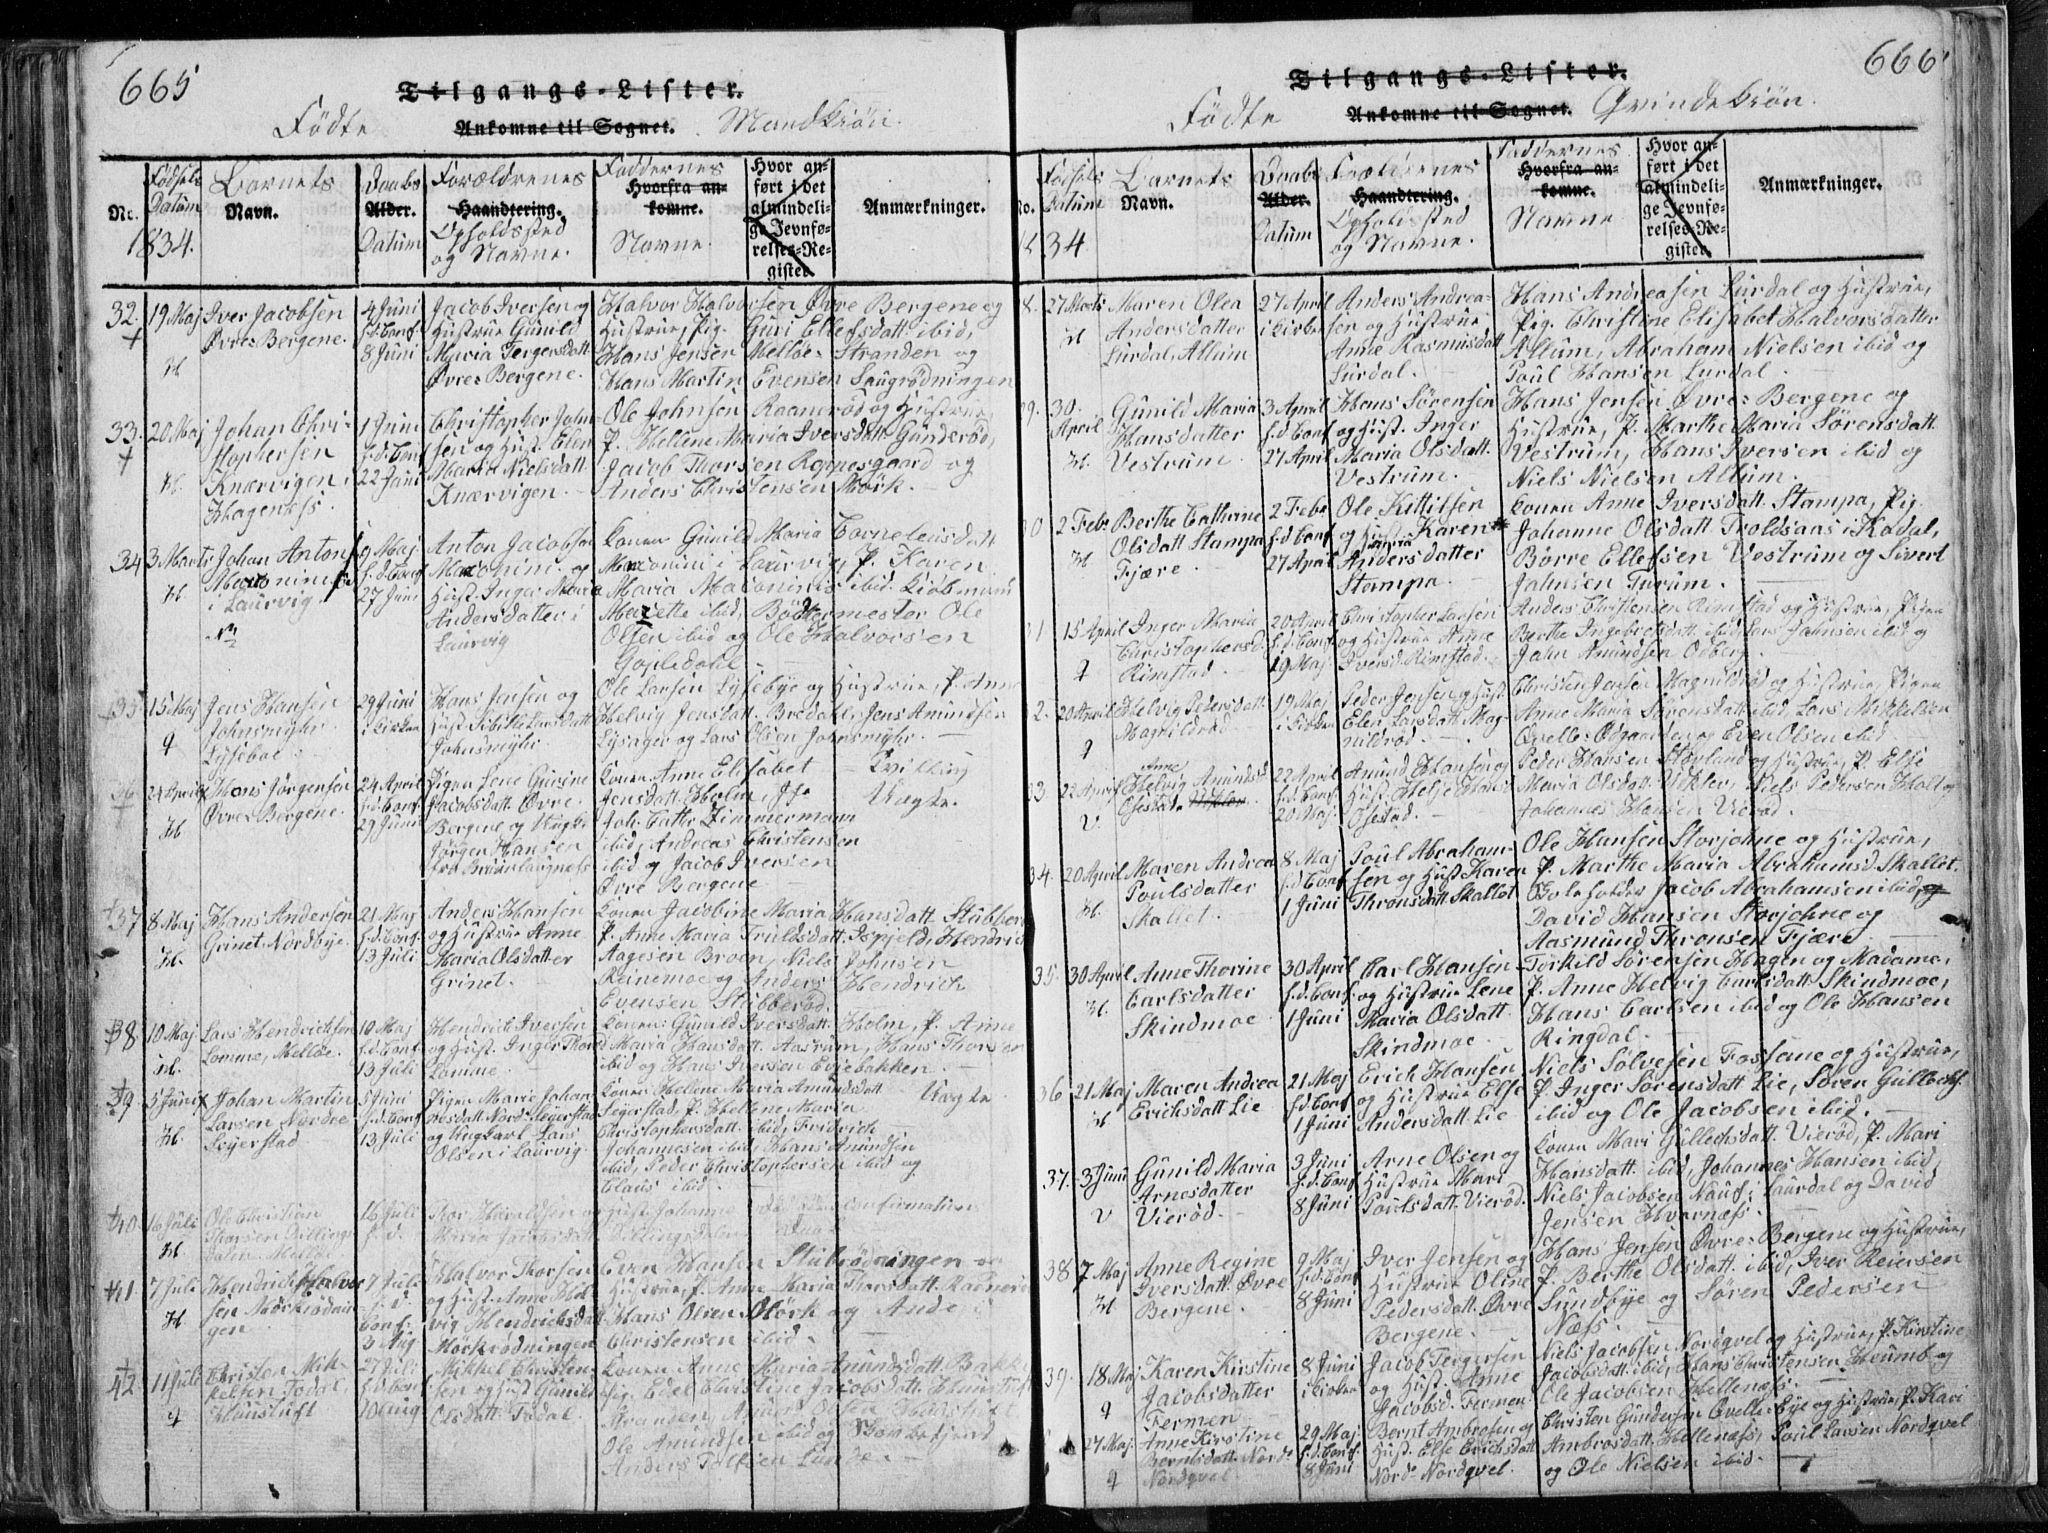 665
Tilgangs-Lister.
Fødte Ankomne til Sognet. Mandkiøn.
No.
Fødsels Datum
1834.
Barnets Navn.
Daabs Alder. Datum
Forældrenes Haandtering. Opholdssted og Navne.
Faddernes Hvorfra ankomne. Navne.
Hvor anført i det almindelige Jevnførelses-Register
Anmærkninger.
32.
19 Maj
H
Iver Jacobsen
Øvre Bergene.
4 Juni
f.d. Conf.
8 Juni
Jacob Iversen og
Hustrue Gunild
Maria Tergersdatt.
Øvre Bergene.
Halvor Halvorsen Øvre Bergene og
Hustrue, Pig. Guri Ellefsdatt. ibid,
Hans Jensen Melløe Stranden og
Hans Martin Evensen Saugrødningen
33.
20 Maj
H.
Johan Chri-
stophersen
Knærvigen i
Hageness.
1 Juni
f.d. Conf
22 Juni
Christopher John-
sen og Hust. Elen
Maria Nielsdatt.
Knærvigen.
Ole Johnsen Raanerød og Hustrue,
P. Hellene Maria Iversdatt. Gunderød,
Jacob Thorsen Roppesgaard og
Anders Christensen Mørk.
34
3 Marts
H
Johan Anton
Maconini
i Laurvig.
9 Maj
f.d. Conf
27 Juni
Anton Jacobsen
Maconini og
Hust. Inger Maria
Andersdatter i
Laurvig
Konen Gunild Maria Corneleusdatt
Maconini i Laurvig, P. Karen
Maria Maconinis ibid. Kiøbmand
Marette ibid, Bødtermester Ole
Olsen ibid og Ole Halvorsen
Gopledahl.
35
15 Maj
q
Jens Hansen
Johnsmyhr
Lysebøe.
29 Juni
i Kirken
Hans Jensen og
Hust. Sibille Larsdatt
Johnsmyhr.
Ole Larsen Lysebye og Hustrue, P. Anne
Helvig Jensdatt. Bredahl, Jens Amundsen
Lysager og Lars Olsen Johnsmyhr.
36
24 April
H
Hans Jørgensen
Øvre Bergene.
24 April
f.d. Conf.
29 Juni
Pigen Lene Gurine
Jacobsdatt. Øvre
Bergene og Ungk.
Jørgen Hansen
fra Brunlaugness
Konen Anne Elisabet
Jensdatt. Holm, Jfr.
Joh. Cathr. Zimmermann
ibid, Andreas Christensen
ibid og Jacob Iversen
Øvre Bergene
Tvilling
Uægte.
37
8 Maj
H.
Hans Andersen
Grinet Nordbye.
21 Maj
f.d. Conf.
13 Juli
Anders Hansen
og Hustrue Anne
Maria Olsdatter
Grinet.
Konen Jacobine Maria Hansdatt. Stubber
P. Anne Maria Trulsdatt. Ispjeld, Hendrich
Aagesen Broen, Niels Johnsen
Reinemoe og Anders Hendrich
Evensen Stubberød.
38
10 Maj
H.
Lars Hendrichsen
Lomme, Melløe.
10 Maj
f.d. Conf.
13 Juli
Hendrich Iversen
og Hust. Inger Thors
Lomme.
Konen Gunild Iversdatt. Holm, P. Anne
Maria Hansdatt. Aasrum, Hans Thorsen
ibid og Hans Iversen Eviebakken.
39
5 Juni
H.
Johan Martin
Larsen Nordre
Seierstad
5 Juni
f.d. Conf
13 Juli
Pigen Marie Johan-
nesdatt. Nordr. Seierstad
og Ungkarl Lars
Olsen i Laurvig
Konen Hellene Maria Amundsdatt.
Seierstad, P. Hellene Maria
Christophersdatt. ibid, Fridrich
Johannesen ibid, Hans Amundsen
ibid, Peder Christophersen ibid og
Claus ibid.
Uægte.
40
16 Juli
H.
Ole Christian
Thorsen Dillings-
dalen Melløe
16 Juli
f.d.
Thor Haraldsen og Hust. Johanne
Maria Jacobsdatt. Dillingsdalen
confirmation
41
7 Juli
H
Hendrich Halvor
sen Mørkrødnin-
gen
7 Juli
f.d.
Conf.
3 Aug.
Halvor Thorsen
og Hust. Anne Hel-
vig Hendrichsdatt
Mørkrødningen
Even Hansen Stubrødningen og
Hustrue, P. Anne Maria Thorsdatt. Raanerød
Hans Olsen Mørk og Ande i
Christensen ibid.
42
11 Juli
q
Christen Mik-
kelsen Jodal,
Haustuft
27 Juli
f.d. Conf
10 Aug
Mikkel Christen-
sen og Hust. Gunild
Olsdatt. Jodal.
Konen Anne Maria Amundsdatt. Bakke
Pig. Edel Christine Jacobsdatt. Haustuft
Stranden, Amund Olsen Haustuft
Ole Amundsen ibid og
Anders Lunde.
666
Tilgangs-Lister.
Fødte Ankomne til Sognet. Qvindekiøn.
No.
Fødsels Datum
1834
Barnets Navn.
Daabs Alder. Datum
Forældrenes Haandtering. Opholdssted og Navne.
Faddernes Hvorfra ankomne. Navne
Hvor anført i det almindelige Jevnførelses-Register
Anmærkninger.
8.
27 Marts
H
Maren Olea
Andersdatter
Lurdal, Allum
27 April
i Kirken
Anders Andrea-
sen og Hustrue
Anne Rasmusdatt
Lurdal.
Hans Andreasen Lurdal og Hustrue,
Pig. Christine Elisabet Halvorsdatter
Allum, Abraham Nielsen ibid og
Poul Hansen Lurdal.
9.
30.
April
H.
Gunild Maria
Hansdatter
Vestrum.
3 April
f.d. Conf
27 April
Hans Sørensen
og Hust. Inger
Maria Olsdatt.
Vestrum.
Hans Jensen Øvre Bergene og
Hustrue, P. Marthe Maria Sørensdatt.
Vestrum, Hans Iversen ibid og
Niels Nielsen Allum.
30
2 Febr
H
Berthe Cathrine
Olsdatt Stampa
Fjære.
2 Febr
f.d. Conf
27 April
Ole Kittilsen
og Hustr. Karen
Maria
Andersdatter
Stampa
Konen Anne Iversdatt. Stampa, Pig.
Johanne Olsdatt Troldsaas i Kodal,
Børre Ellefsen Vestrum og Sivert
Johnsen Furum.
31
15 April
q
Inger Maria
Christophersd.
Rimstad.
20 April
f.d. Conf
19 Maj.
Christopher Larsen
og Hustrue Anne
Iversd. Rimstad.
Anders Christensen Rimstad og Hustrue, Pigen
Berthe Ingebretsdatt. ibid, Lars Johnsen ibid og
John Amundsen Odberg.
2.
20 April
q
Helvig Pedersdatt.
Magnildrød
19 Maj
i Kirken
Peder Jensen og Hust
Elen Larsdatt. Mag-
nildrød.
Christen Jensen Magnildrød og Hustrue, Pigen
Anne Maria Sørensdatt. ibid, Lars Mikkelsen
Qvelle Odgaarden og Even Olsen ibid.
33
22 April
V.
Anne
Helvig Amundsd.
Osestad.
22 April
f.d. Conf
20 Maj.
Amund Hansen og
Hust. Helje Hansd
Osestad.
Peder Hansen Støvland og Hustrue, P. Else
Maria Olsdatt. Vikler, Niels Pedersen Holt og
Johannes Hansen Vierød.
34.
20 April
H.
Maren Andrea
Poulsdatter
Skallet.
8 Maj
f.d. Conf
1 Juni
Poul Abraham-
sen og Hust Karen
Thronsdatt Skallet
Ole Hansen Storjohne og Hustrue,
P. Marthe Maria Abrahamsd. Skallet.
Jacob Abrahamsen ibid, og
David Hansen Storjohne og
Aasmund Thronsen Fjære
35.
30 April
H.
Anne Thorine
Carlsdatter
Skindmoe
30 April
f.d. Conf.
1 Juni
Carl Hansen
og Hustrue Lene
Maria Olsdatt.
Skindmoe
Torkild Sørensen Hagen og Madame,
P. Anne Helvig Carlsdatt. Skindmoe,
Hans Carlsen ibid og Ole Hansen
Ringdal.
36
21 Maj
H
Maren Andrea
Erichsdatt Lie
21 Maj
f.d. Conf
1 Juni
Erich Hansen
og Hustrue Else
Andersdatt Lie
Niels Solvesen Fossene og Hustrue,
P. Inger Sørensdatt. Lie, Søren Gullechs.
ibid og Ole Jacobsen ibid.
37.
3 Juni
V
Gunild Maria
Arnesdatter
Vierød.
3 Juni
f.d. Conf.
8 Juni
Arne Olsen og
Hustrue Mari
Poulsdatt. Vierød.
Konen Mari Gullechsdatt. Vierød, P. Mari
Hansdatt. ibid, Johannes Hansen ibid,
Niels Jacobsen Nauf i Laurdal og David
Jensen Hvarnæss.
38
7 Maj
H
Anne Regine
Iversdatt. Øvre
Bergene.
9 Maj
f.d. Conf
8 Juni
Iver Jensen og
Hustrue Oline
Pedersdatt. Øvre
Bergene.
Hans Jensen Øvre Bergene og Hustrue,
P. Berthe Olsdatt. ibid, Iver Reiersen
Sundbye og Søren Pedersen
Næss.
39.
18 Maj
q
Karen Kirstine
Jacobsdatter
Fermen
8 Juni
i Kirken
Jacob Tergersen
og Hust. Anne
Jacobsd. Fermen.
Niels Jacobsen Nordqvel og Hustrue, P. Kirstine
Jacobsdatt. ibid, Hans Christensen Heumb og
Ole Jacobsen Hellenæss.
27 Maj.
q
Anne Kirstine
Berntsdatt. Nordr.
Nordqvel
29 Maj
f.d. Conf
8 Juni
Bernt Ambrosen og
Hust. Else Erichsdatt
Nordr. Nordqvel.
Christen Gundersen Qvelle Eye og Hustrue, P. Kari
Ambrosdatt. Hellenæss, Poul Larsen Nordqvel
og Ole Nielsen ibid.